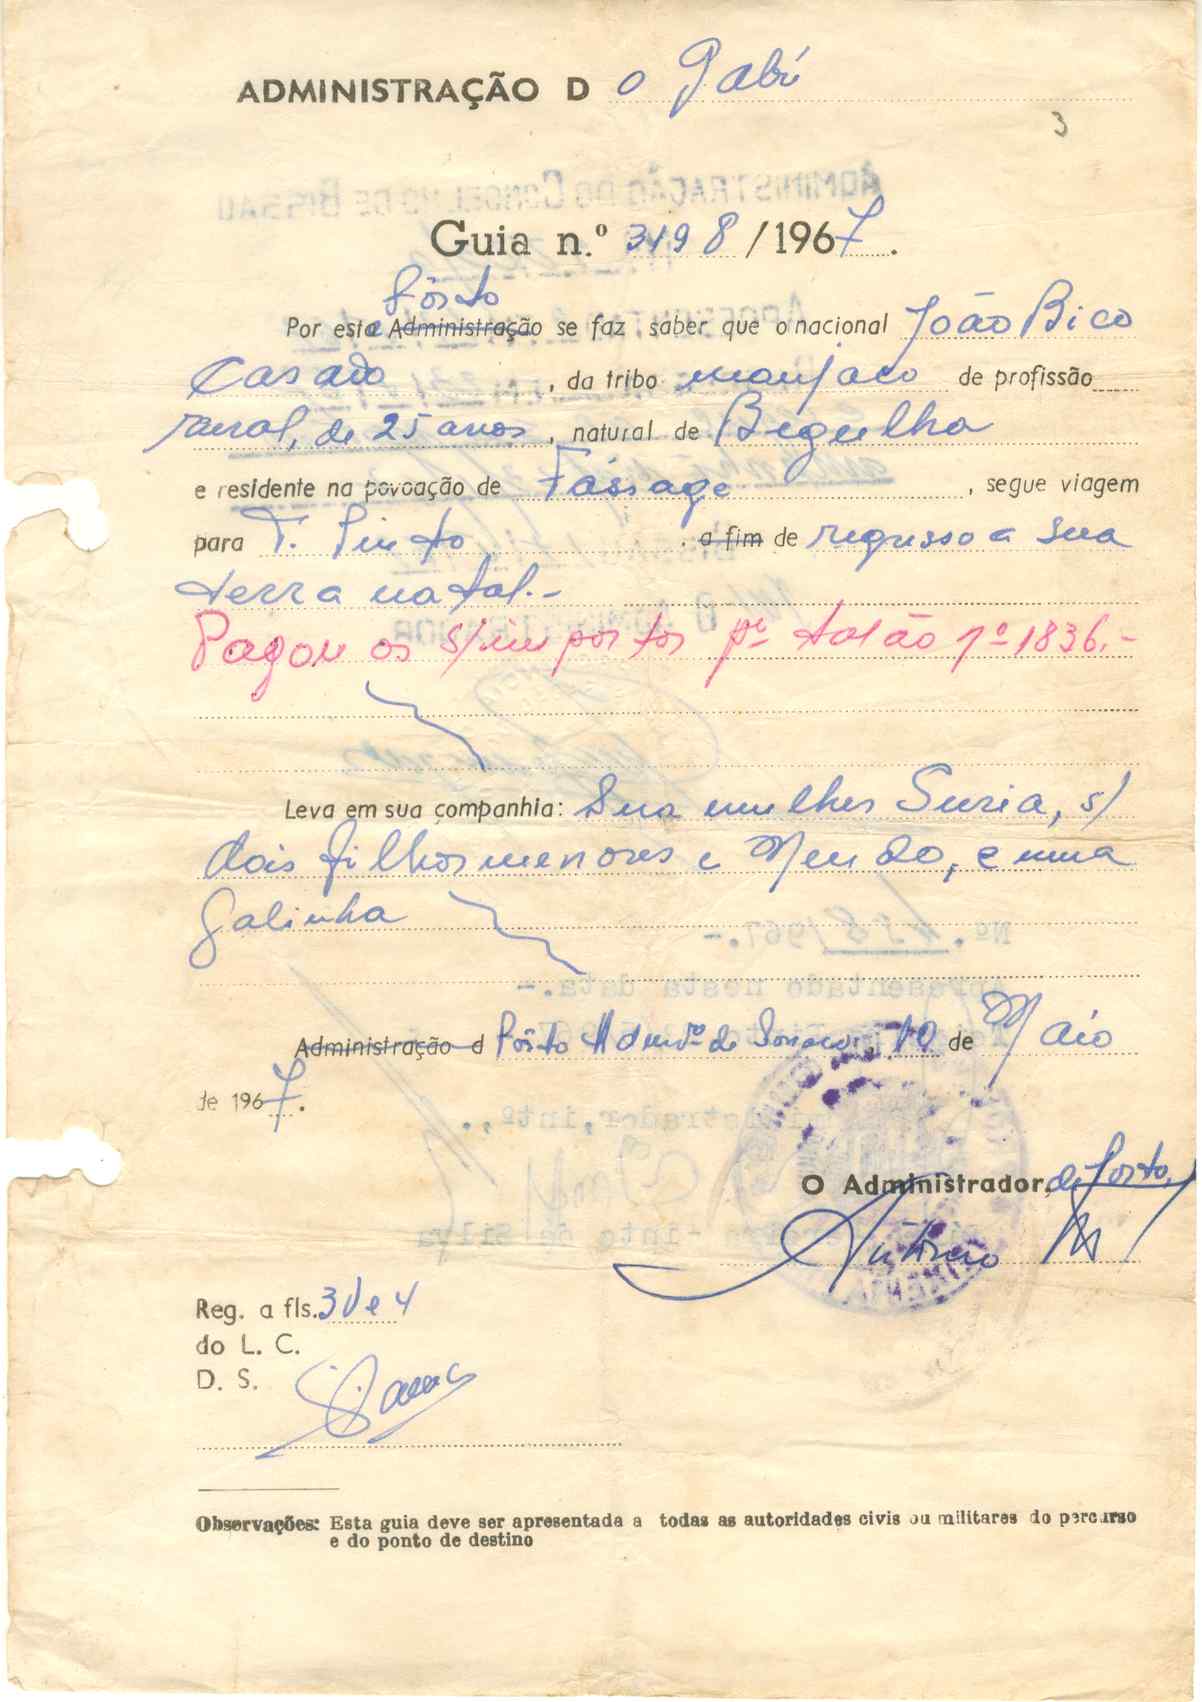 ADMINISTRAÇÃO D o Gabú
3
Guia n.º 3198/1967.
Pôsto
Por este Administração se faz saber que o nacional João Bico
Casado, da tribo manjaco de profissão
rural, de 25 anos, natural de Bigulha
e residente na povoação de Fássage, segue viagem
para T. Pinto a fim de regresso a sua
terra natal.-
Pagou os s/impostos pº talão nº 1836.-
Leva em sua companhia: Sua mulher Suria, s/
dois filhos menores e Mendo, e uma
galinha
Administração d Pôsto Admvº de Sonaco, 10 de Maio
de 1967.
O Administrador, de Posto,
António
Reg. a fls. 3V e 4
do L. C.
D. S.
Observações: Esta guia deve ser apresentada a todas as autoridades civis ou militares do percurso
e do ponto de destino